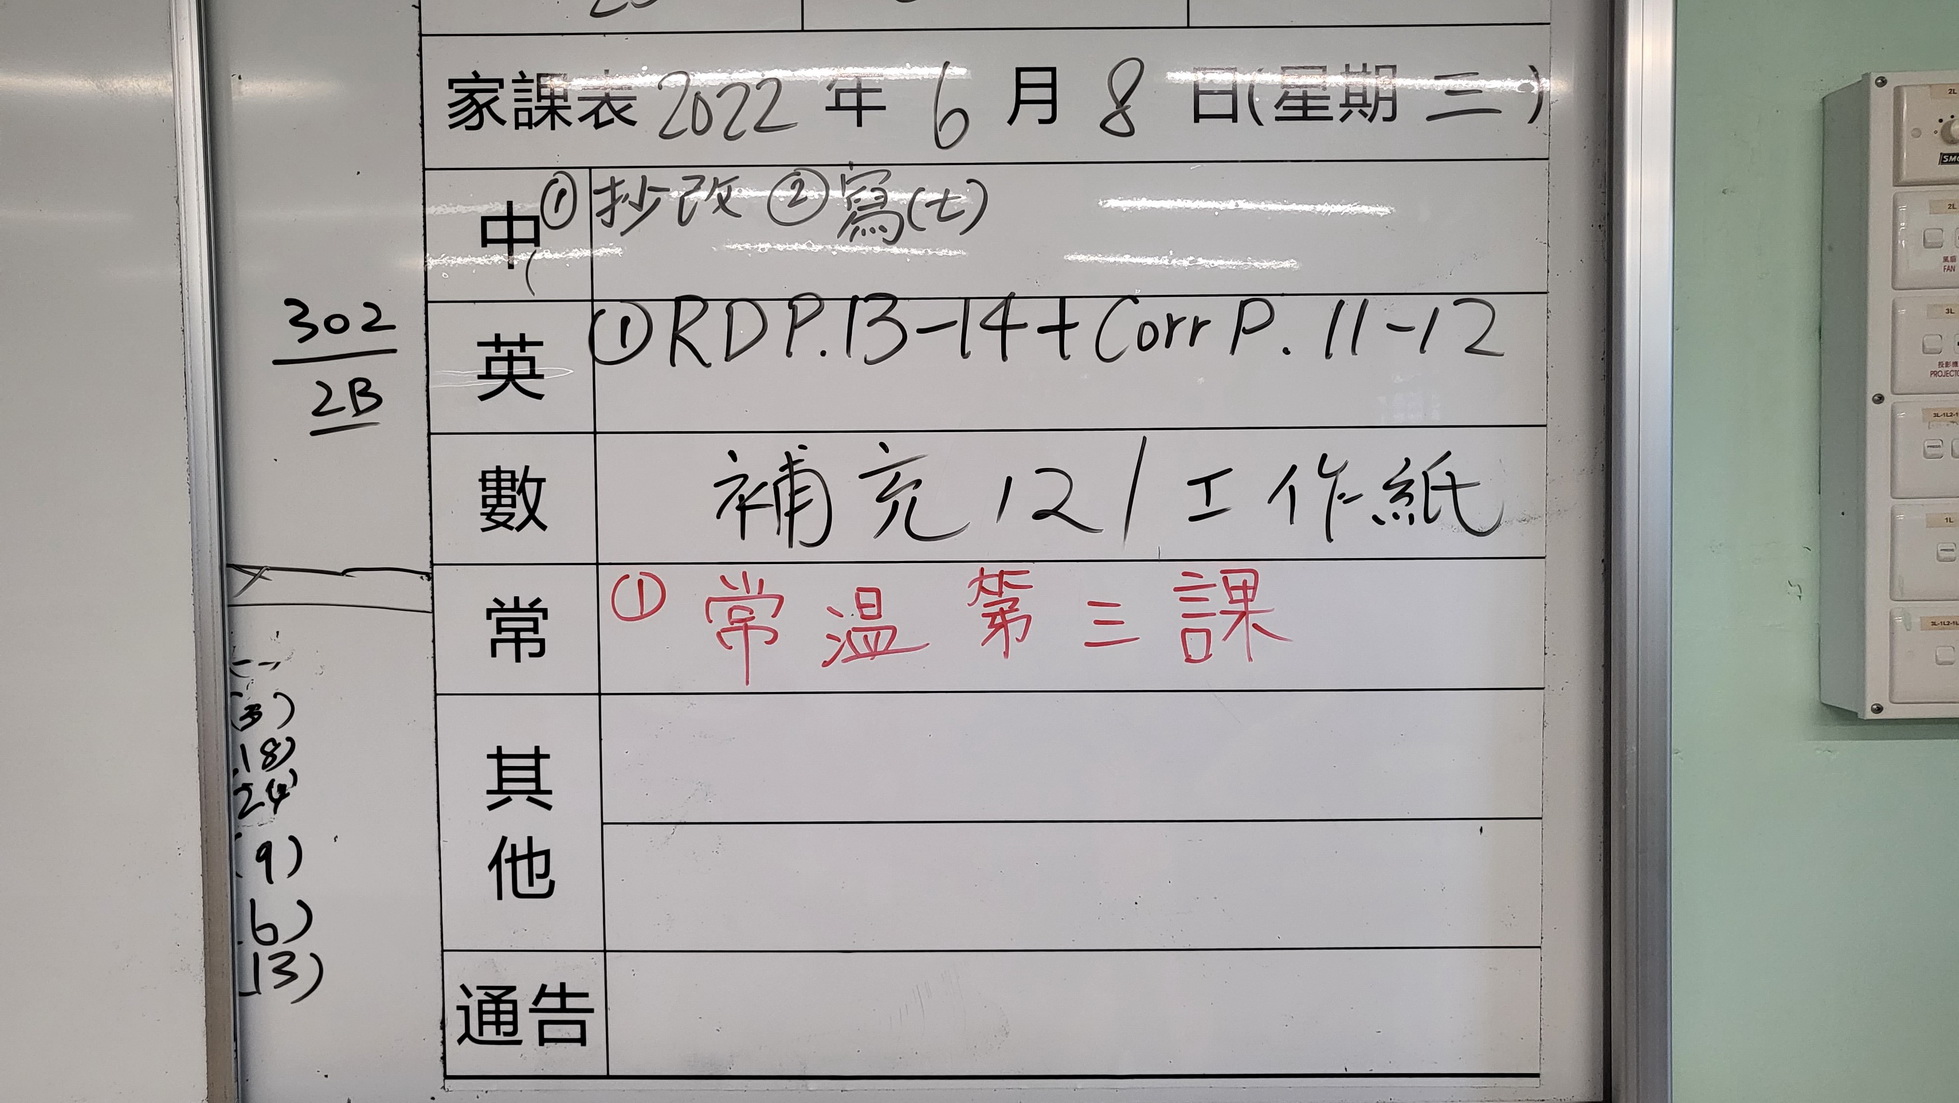 家課表 2022 年 6 月 8 日(星期 三)
中 ①抄改 ②寫(七)
英 ①RD P.13-14+Corr P.11-12
數 補充12/工作紙
常 ①常溫第三課
其他
通告
302
2B
(3)
18)
24)
(9)
6)
13)
2L
SMC
2L
風扇
FAN
3L
1L